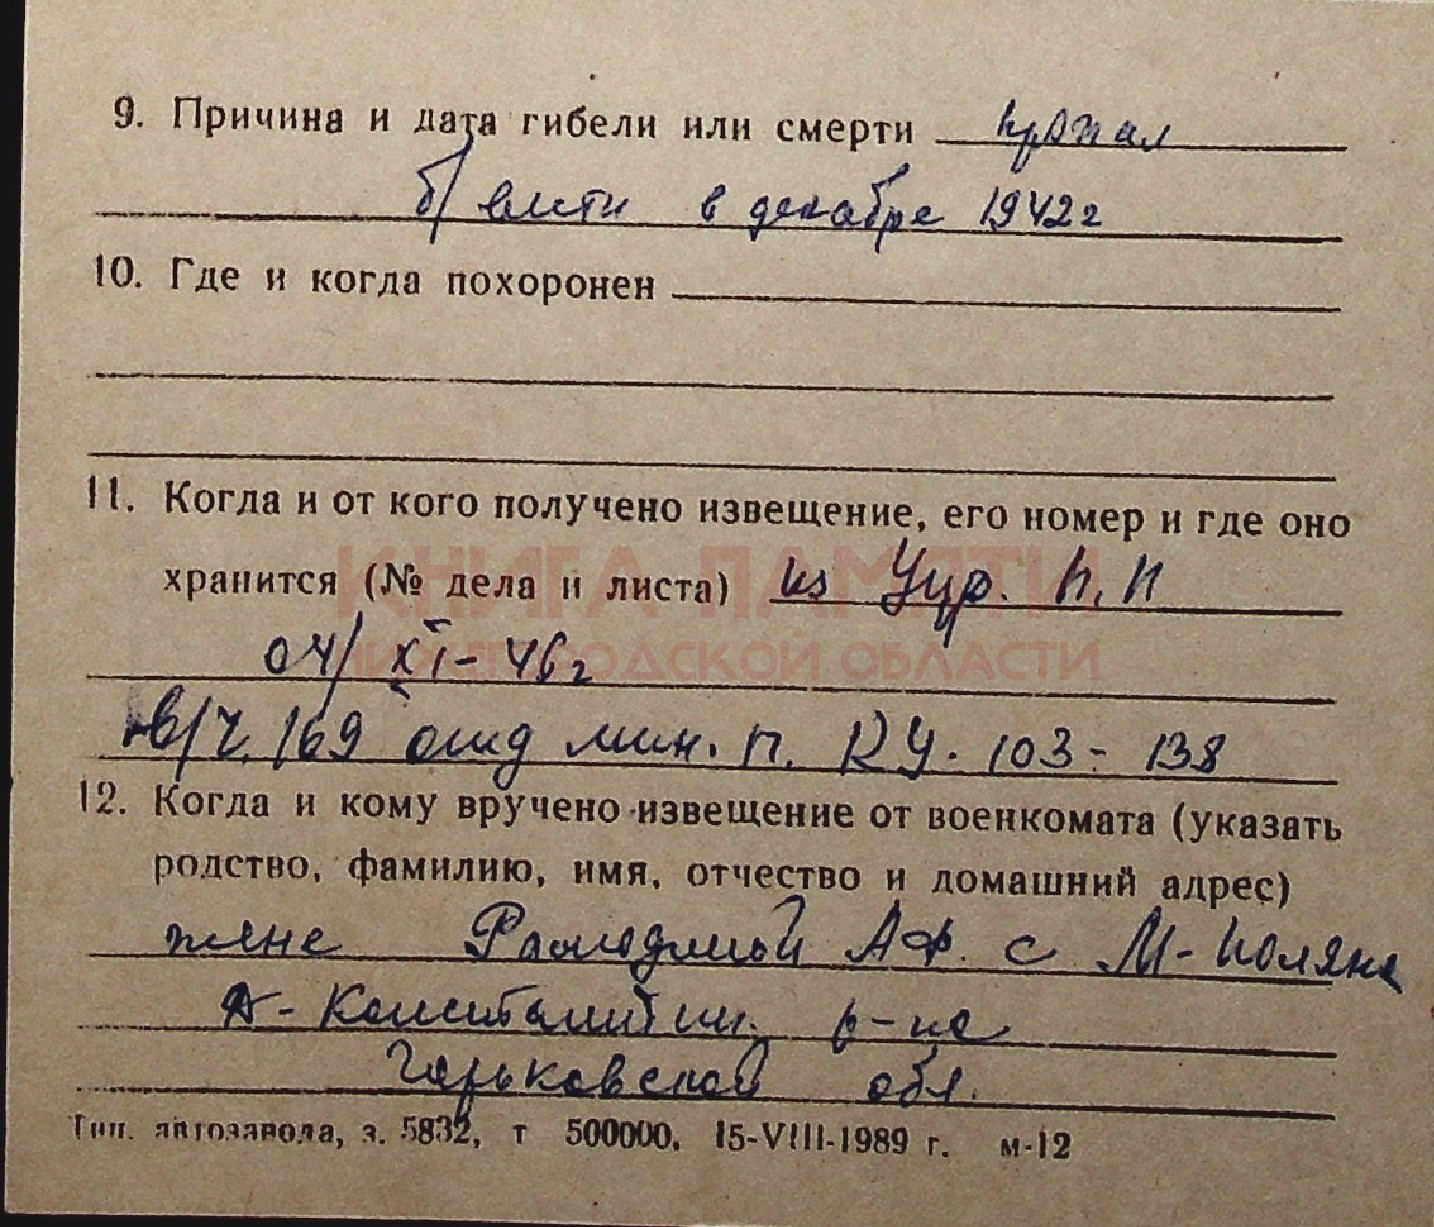 9. Причина и дата гибели или смерти пропал
б/ вести в декабре 1942 г
10. Где и когда похоронен
11. Когда и от кого получено извещение, его номер и где оно
КНИГА ПАМЯТИ
хранится (№ дела и листа) из Упр. п. п
НИЖЕГОРОДСКОЙ ОБЛАСТИ
04/XI-46г
в/ч. 169 отд мин. п. 103-138
12. Когда и кому вручено извещение от военкомата (указать
родство, фамилию, имя, отчество и домашний адрес)
жене АФ. с М-Поляна
Д-Константин. р-на
Горьковской обл.
Тип. автозавода, з. 5832, т 500000, 15-VIII-1989 г. м-12